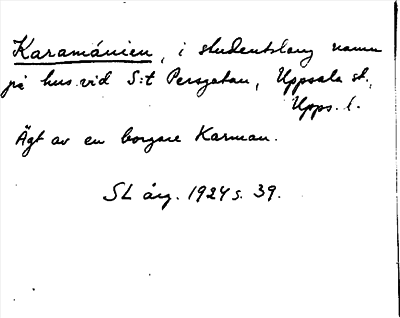 Karamánien, i studentslang namn
på hus vid S:t Persgatan, Uppsala st.,
Upps. l.
Ägt av en borgare Karman.
SL årg. 1924 s. 39.